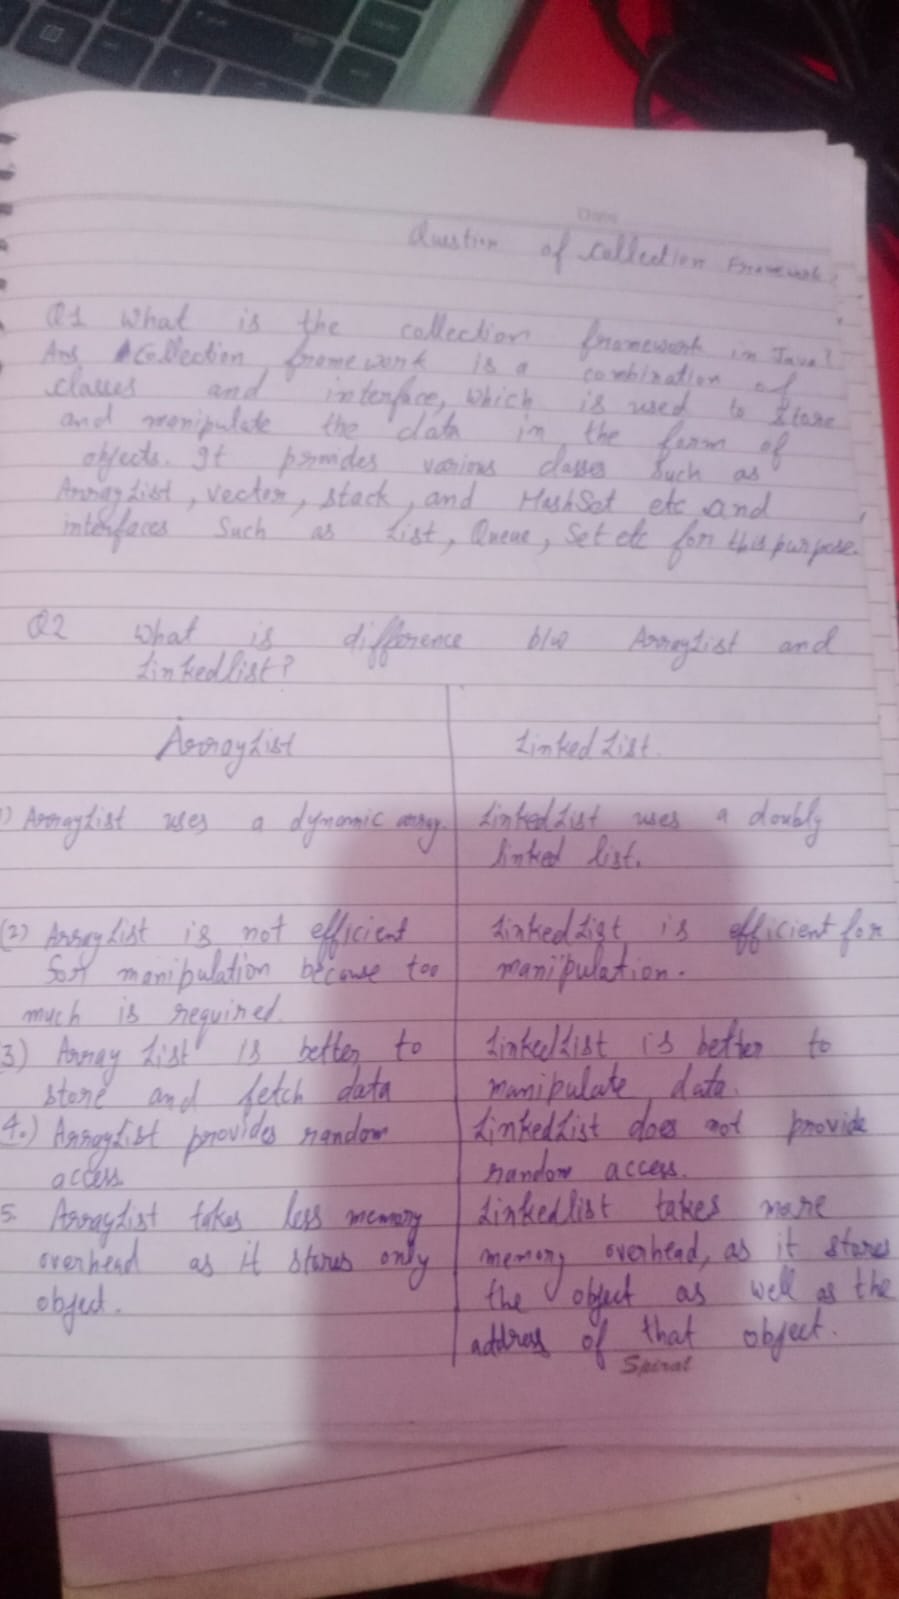 Date
Question of Collection Framework?
Q1 What is the collection framework in Java?
Ans Collection framework is a combination of
classes and interface, which is used to store
and manipulate the data in the form of
objects. It provides various classes such as
ArrayList, vector, stack, and HashSet etc and
interfaces such as List, Queue, Set etc for this purpose.
Q2 What is difference b/w ArrayList and
Linkedlist?
ArrayList
Linked List.
1) ArrayList uses a dynamic array.
LinkedList uses a doubly
linked list.
(2) ArrayList is not efficient
for manipulation because too
much is required.
LinkedList is efficient for
manipulation.
3) Array List is better to
store and fetch data
LinkedList is better to
manipulate data.
4.) ArrayList provides random
access.
LinkedList does not provide
random access.
5. ArrayList takes less memory
overhead as it stores only
object.
Linkedlist takes more
memory overhead, as it stores
the object as well as the
address of that object.
Spiral